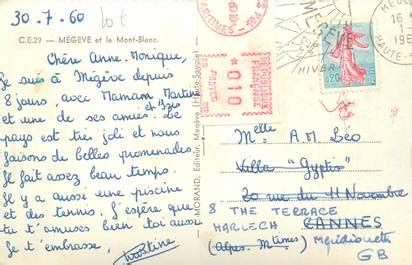 30-7-60
lot
C.E.29 - MEGEVE et le Mont-Blanc.
Chère Anne-Monique,
Je suis à Mégève depuis
8 jours, avec Maman Martine
et Yves
et une de ses amies. Le
pays est très joli et nous
faisons de belles promenades.
Il fait assez beau temps.
Il y a aussi une piscine
et des tennis. J'espère que
tu t'amuses bien toi aussi
Je t'embrasse,
Martine
MORAND, Editeur, Megève (Haute-Savoie)
MARITIMES
REPUBLIQUE FRANÇAISE
010
POSTES
MEGEVE
HIVER
0,20
MEGEVE
16
HAUTE
Melle A.M. Léo
Villa "Gyptis"
20 rue du 11 Novembre
8 THE TERRACE
CANNES
HARLECH
(Alpes-Mtimes)
GB